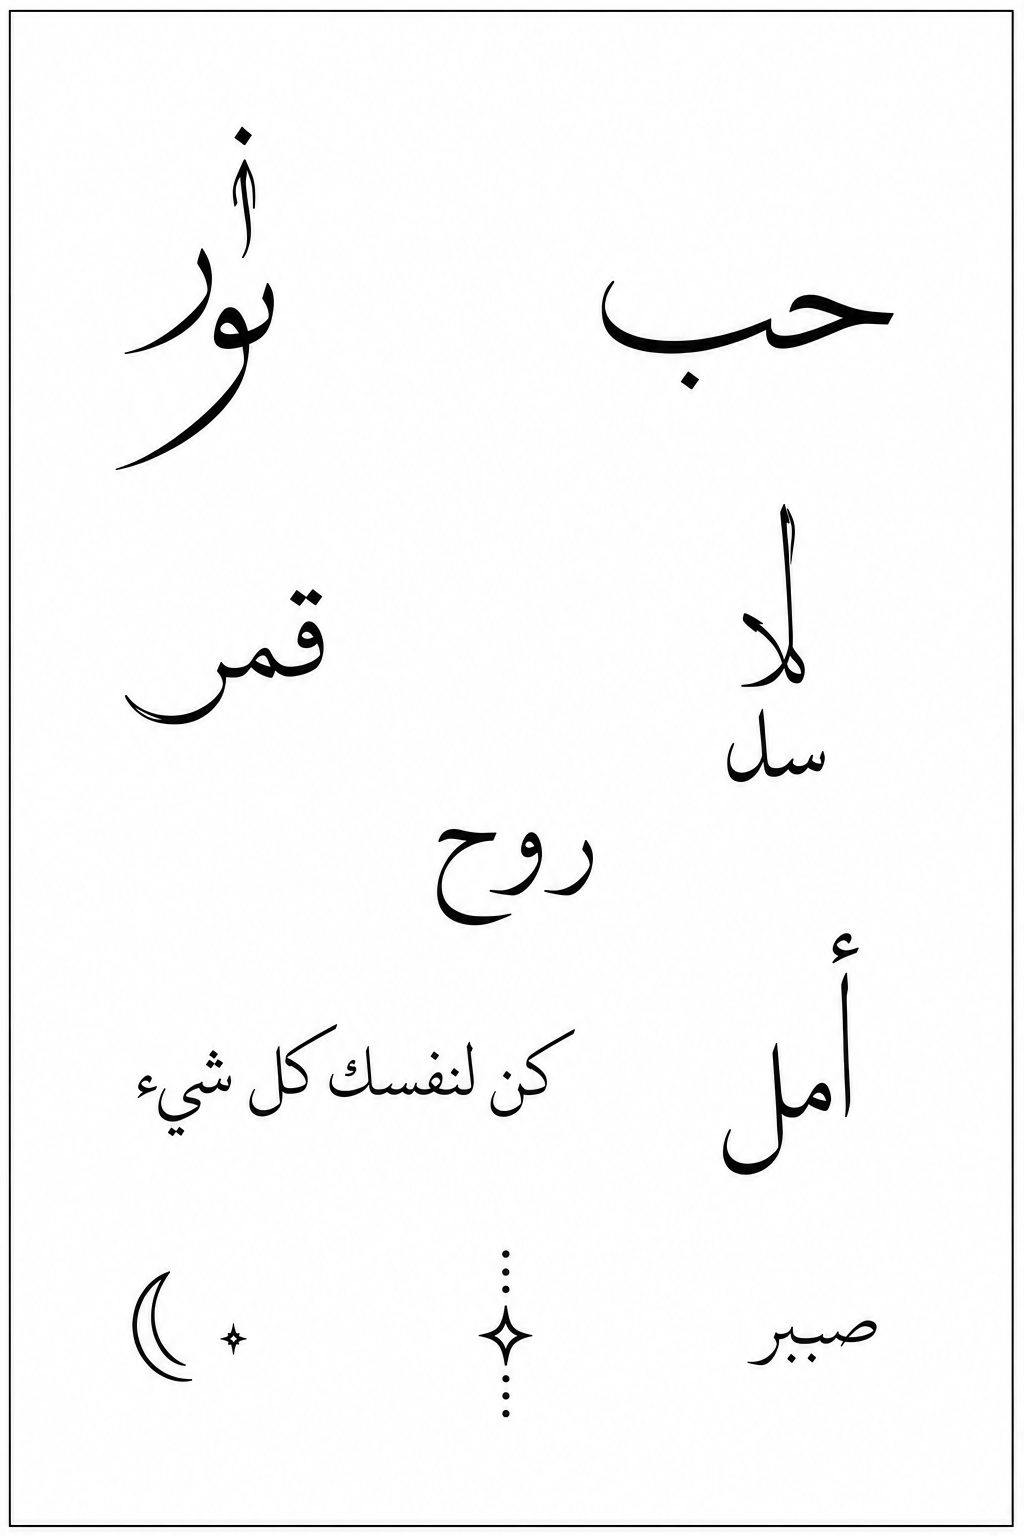 حب
نور
لا
قمر
سل
روح
أمل
كن لنفسك كل شيء
صببر